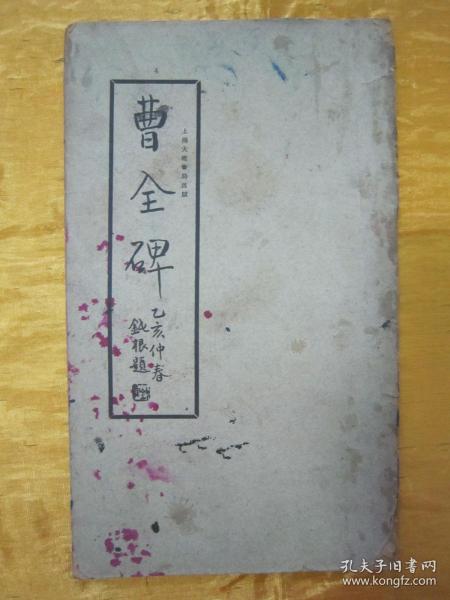 曹全碑
上海大衆書局出版
乙亥仲春
鈍根題
孔夫子旧书网
www.kongfz.com